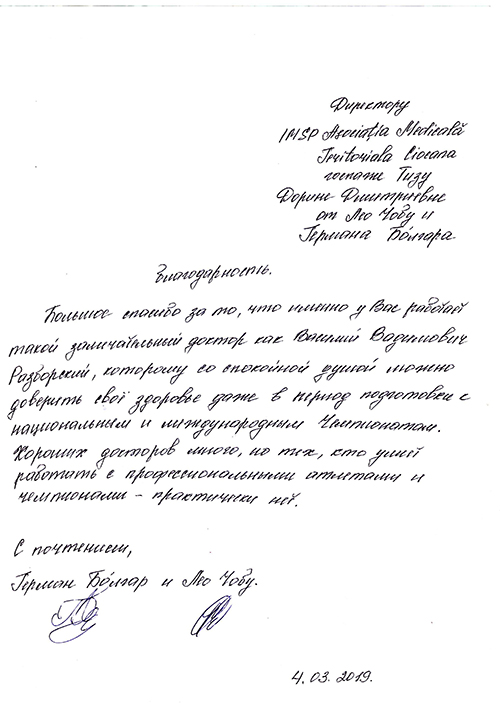 Директору
IMSP Asociația Medicală
Teritoriala Ciocana
госпаже Тизу
Дорине Дмитриевне
от Лео Чобу и
Германа Бо́лгара.
Благодарность.
Большое спасибо за то, что именно у Вас работает
такой замечательный доктор как Василий Вадимович
Разборский, которому со спокойной душой можно
доверить своё здоровье даже в период подготовки к
национальным и международным Чемпионатам.
Хороших докторов много, но тех, кто умеет
работать с профессиональными атлетами и
чемпионами – практически нет.
С почтением,
Герман Бо́лгар и Лео Чобу.
4.03.2019.